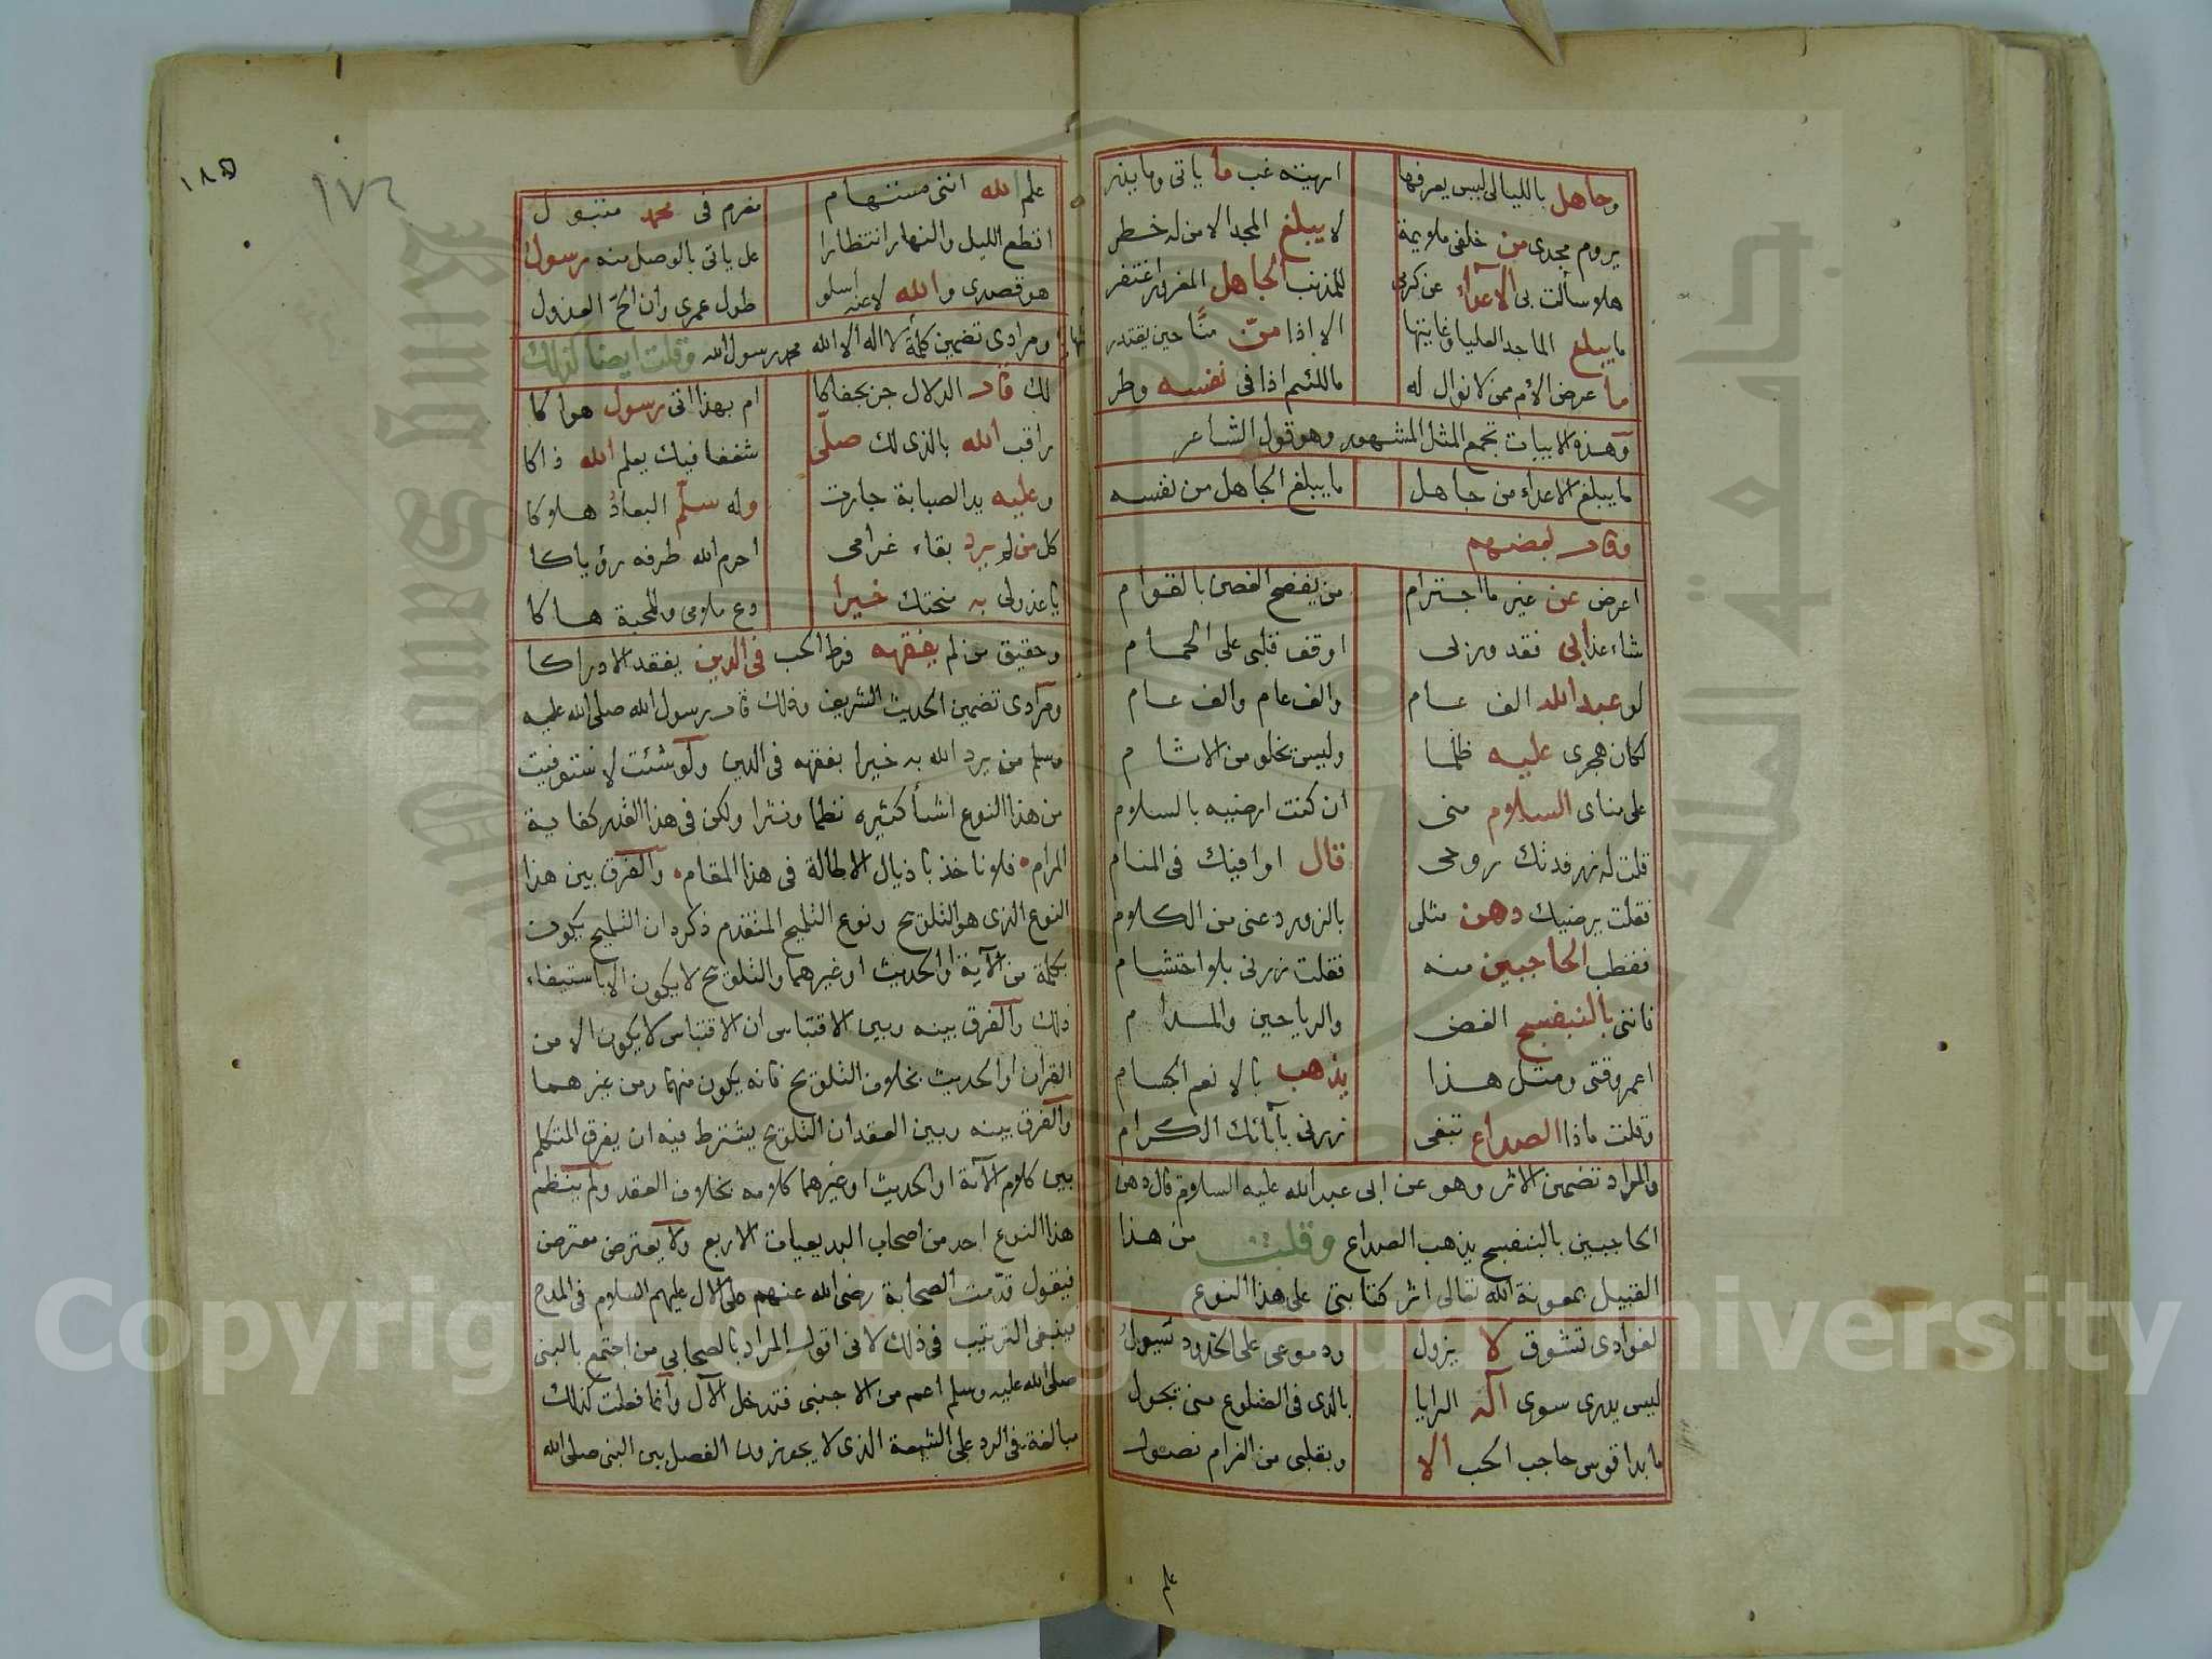 وجاهل بالليالي ليس يعرفها اريته غب ما ياتي وما يذر
يروم مجدى من خلفى ملويمة لا يبلغ المجد الا من له خطر
هلا سألت بى الاعداء عن كرمى للمذنب الجاهل المغرور اغتفر
ما يبلغ الماجد العليا وغايتها الا اذا منّ منّا حين يقتدر
ما عرض الأم ممن لا نوال له ما للئيم اذا فى نفسه وطر
وهذه الابيات تجمع المثل المشهور وهو قول الشاعر
ما يبلغ الاعداء من جاهل ما يبلغ الجاهل من نفسه
وقال بعضهم
اعرض عن غير ما اجترام من يفضح الغصن بالقوام
شاء عذابى فقد ورنى اوقف قلبى على الحمام
لو عبد الله الف عام والف عام والف عام
لكان هجرى عليه ظلما وليس تخلو من الاثام
على مناى السلام منى ان كنت ارضيه بالسلام
قلت له زر فدتك روحى قال اوافيك فى المنام
فقلت يرضيك دهن مثلى بالزور دعنى من الكلام
فقطب الحاجبين منه فقلت زرنى بلا احتشام
فانثى بالبنفسج الغض والرياحين والمدام
اعمر وقتى ومثل هذا يذهب بالانعم الجسام
وقلت ماذا الصداع تبغى زرنى بآبائك الكرام
والمراد تضمين الاثر وهو عن ابى عبد الله عليه السلام قال دهن
الحاجبين بالبنفسج يذهب الصداع وقلت من هذا
القبيل بمعونة الله تعالى اثر كتابتى على هذا النوع
لفوادى تشوق لا يزول ودموعى على الخدود تسيول
ليس يدرى سوى آله البرايا بالذى فى الضلوع منى تجول
ما بدا قوس حاجب الحب الا وبقلبى من الغرام نصول
علم
١٨٥
١٧٤
علم الله اننى مستهام مغرم فى محمد متبول
اقطع الليل والنهار انتظارا عل ياتى بالوصل منه رسول
هو قصدى والله لا عنه اسلو طول عمرى وان الحّ العذول
ومرادى تضمين كلمة لا اله الا الله محمد رسول الله وقلت ايضا لذلك
لك قاد الدلال جزيجفاكا ام بهذا اتى رسول هواكا
راقب الله بالذى لك صلّى شغفا فيك يعلم الله ذاكا
وعليه يد الصبابة جارت وله سلّم البعاد هلاكا
كل من لم يرد بقاء غرامى احرم الله طرفه رؤياكا
يا عذولى به منحتك خيرا دع ملامى وللمحبة هاكا
وحقيق من لم يفقهه فرط الحب فى الدين يفقد الادراكا
ومرادى تضمين الحديث الشريف وذلك قال رسول الله صلى الله عليه
وسلم من يرد الله به خيرا يفقهه فى الدين ولو شئت لاستوفيت
من هذا النوع اشيأ كثيره نظما ونثرا ولكن فى هذا القدر كفاية
المرام فلا ناخذ باذيال الاطالة فى هذا المقام والفرق بين هذا
النوع الذى هو التلويح ونوع التلميح المتقدم ذكره ان التلميح يكون
بكلمة من الآية او الحديث او غيرهما والتلويح لا يكون الا باستيفاء
ذلك والفرق بينه وبين الاقتباس ان الاقتباس لا يكون الا من
القران او الحديث بخلاف التلويح فانه يكون منهما ومن غيرهما
والفرق بينه وبين العقد ان التلويح يشترط فيه ان يفرق المتكلم
بين كلام الآية او الحديث او غيرهما كلامه بخلاف العقد ولم ينظم
هذا النوع احد من اصحاب البديعيات الاربع ولا يعترض معترض
فيقول قدّمت الصحابة رضى الله عنهم على الال عليهم السلام فى المدح
ينبغى الترتيب فى ذلك لانى اقول المراد بالصحابى من اجتمع بالنبى
صلى الله عليه وسلم اعم من الاجنبى فتدخل الآل وانما فعلت كذلك
مبالغة فى الرد على الشيعة الذى لا يجوزون الفصل بين النبى صلى الله
Copyright © King Saud University
جامعة الملك سعود
King Saud University